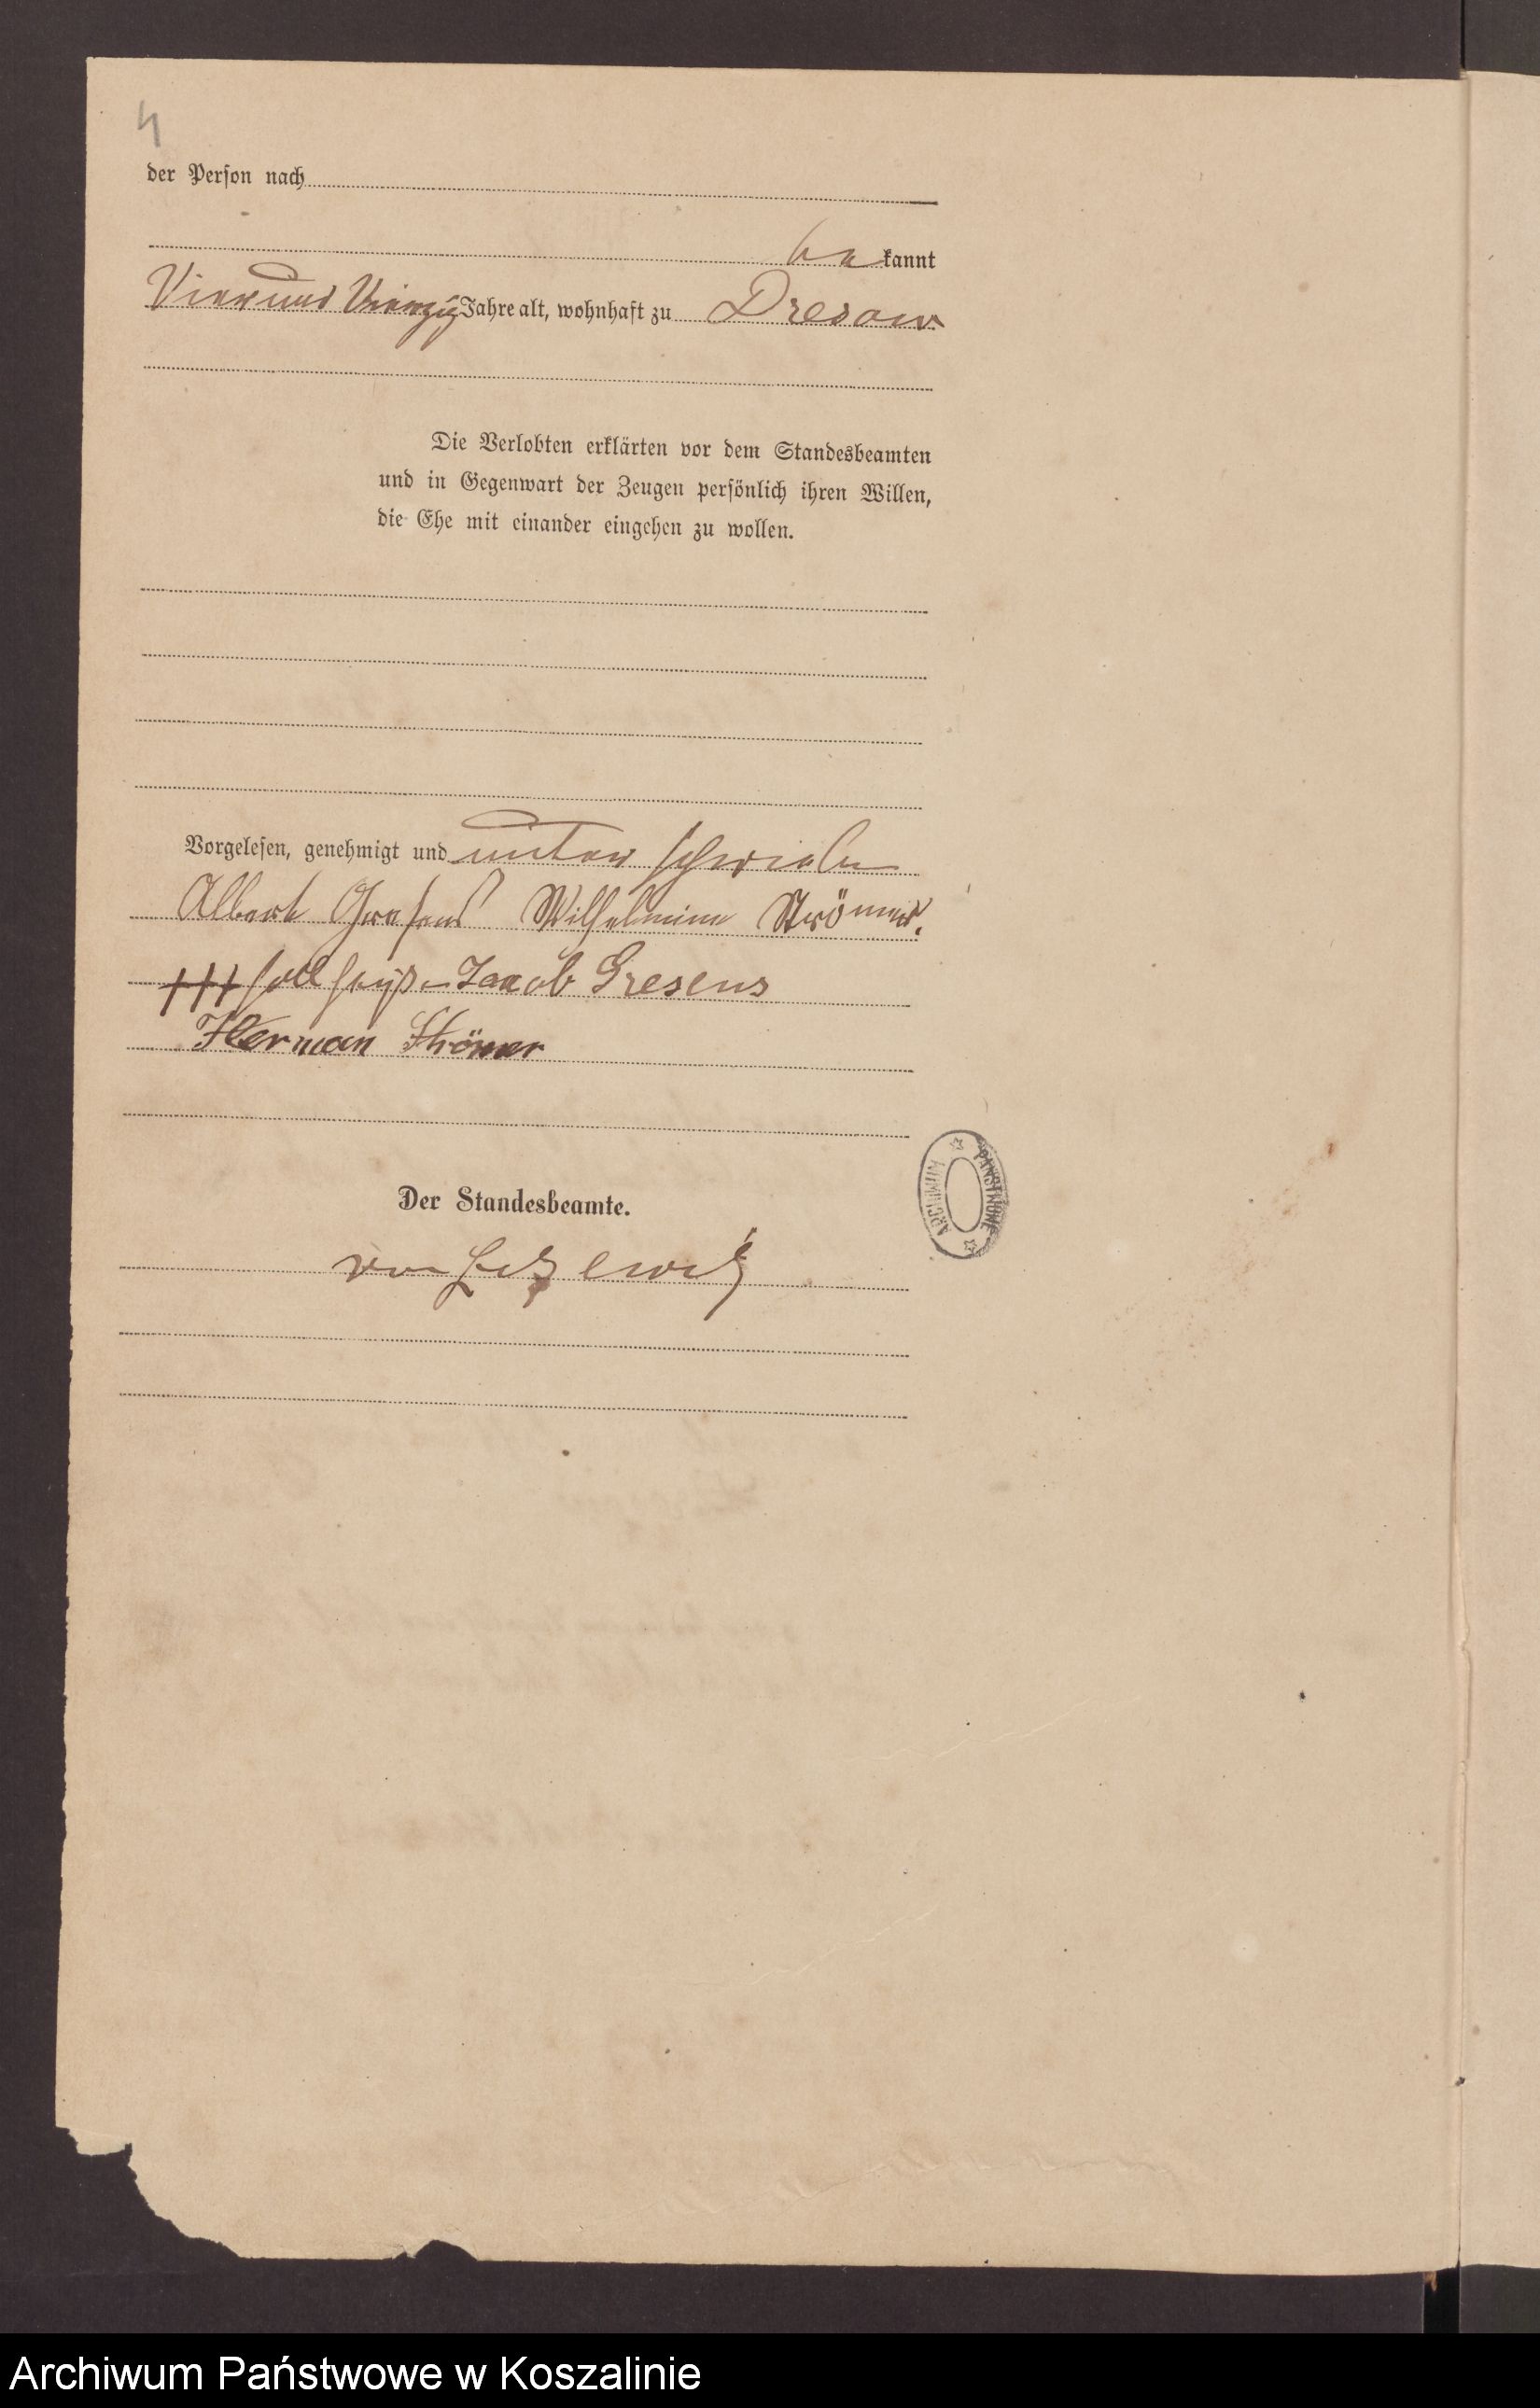 4
der Person nach
be kannt
Vier und Vierzig Jahre alt, wohnhaft zu Dresow
Die Verlobten erklärten vor dem Standesbeamten
und in Gegenwart der Zeugen persönlich ihren Willen,
die Ehe mit einander eingehen zu wollen.
Vorgelesen, genehmigt und unter schrieben
Albert Gresens Wilhelmine Strömer.
+++ soll heißen Jacob Gresens
Herman Strömer
Der Standesbeamte.
von
ARCHIWUM PAŃSTWOWE
Archiwum Państwowe w Koszalinie